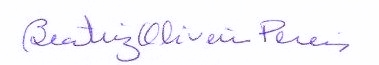 Beatriz Oliveira Pereira